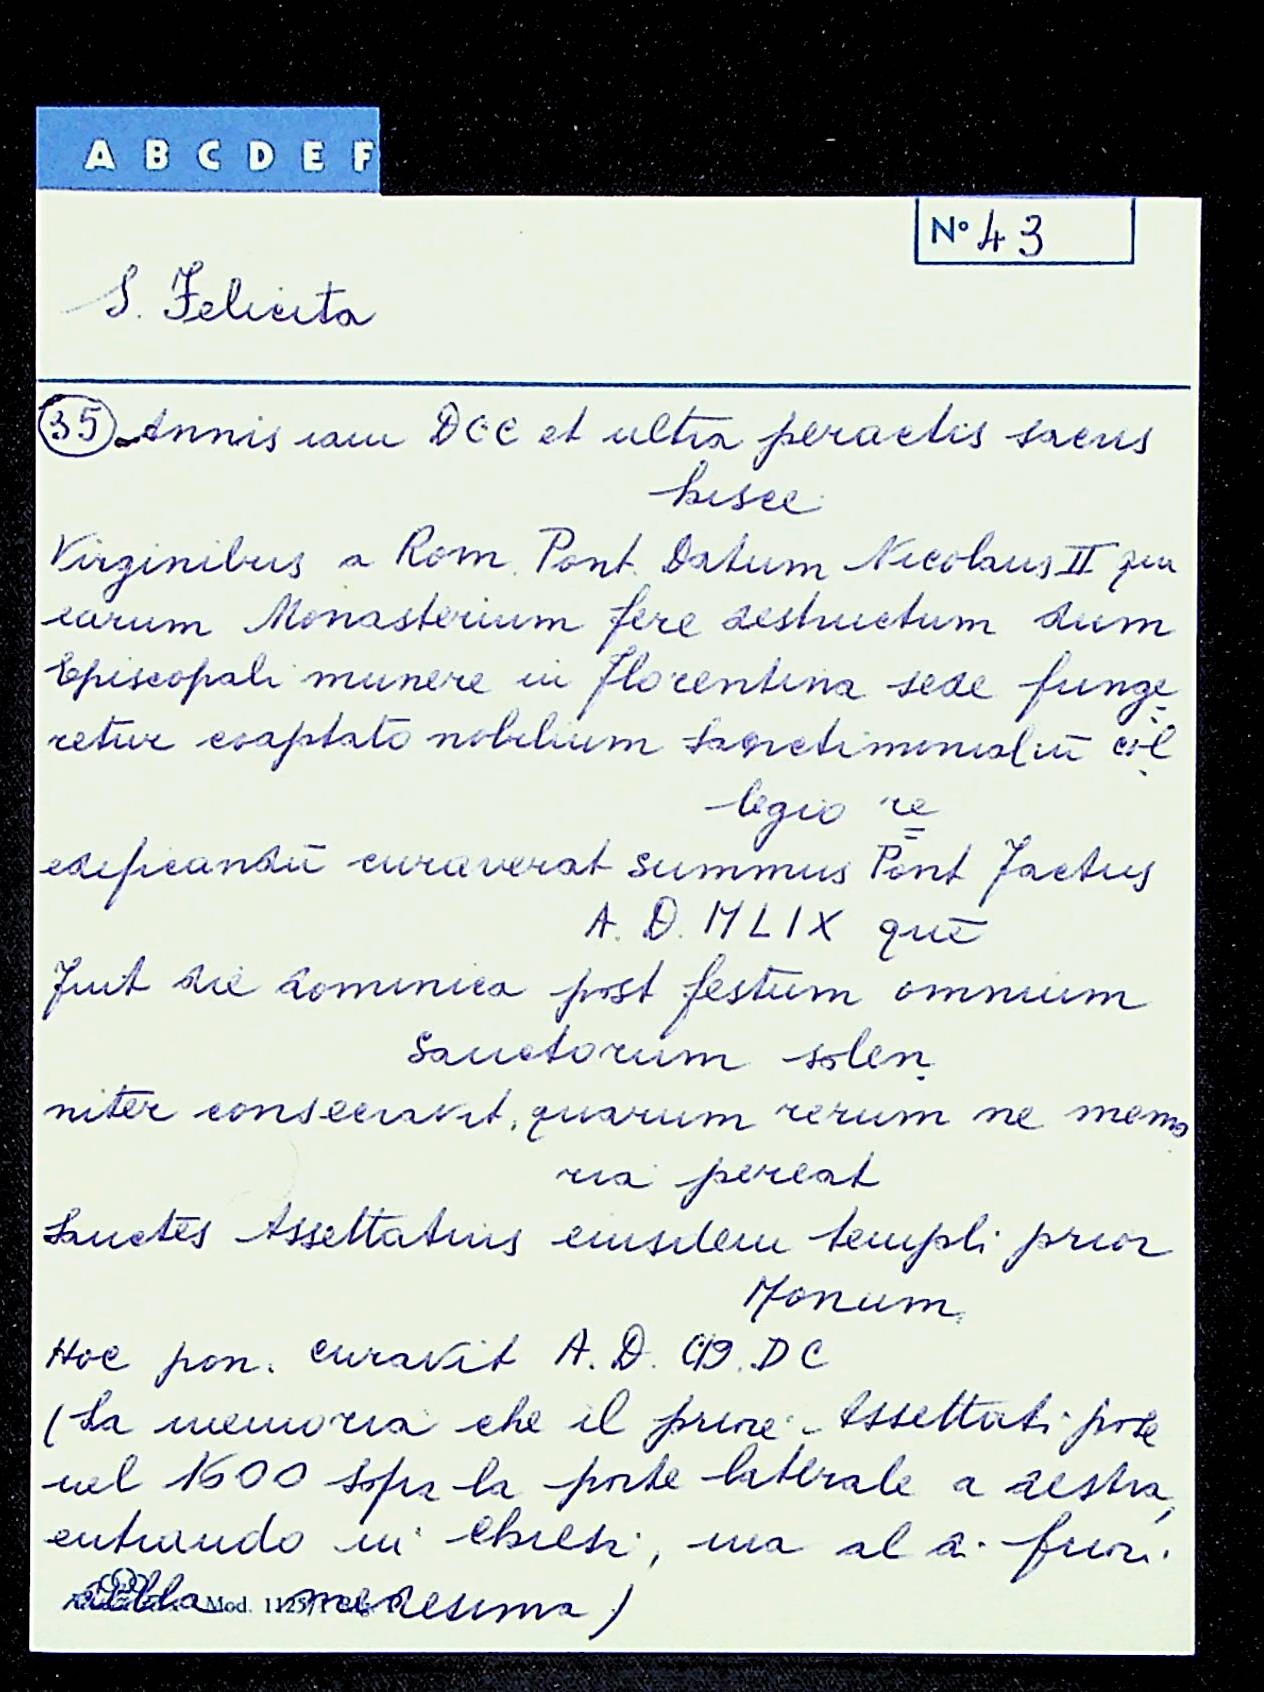 A B C D E F
N° 43
S. Felicita
35 Annis iam DCC et ultra peractis sacris
hisce
Virginibus a Rom. Pont. Datum Nicolaus II qui
earum Monasterium fere destructum dum
Episcopali munere in Florentina sede funge
retur coaptato nobilium sanctimonialiū col
legio re
edificandū curaverat summus Pont Factus
A. D. MLIX quē
Fuit die dominica post festum omnium
Sanctorum solen
niter consecravit, quarum rerum ne memo
ria pereat
Sanctēs Assettatius eiusdem templi prior
Monum.
Hoc pon. curavit A. D. CIƆ. DC
(La memoria che il priore Assettati pose
nel 1600 sopra la porta laterale a destra,
entrando in chiesa, ma al di fuori
della medesima)
Mod. 1125/1